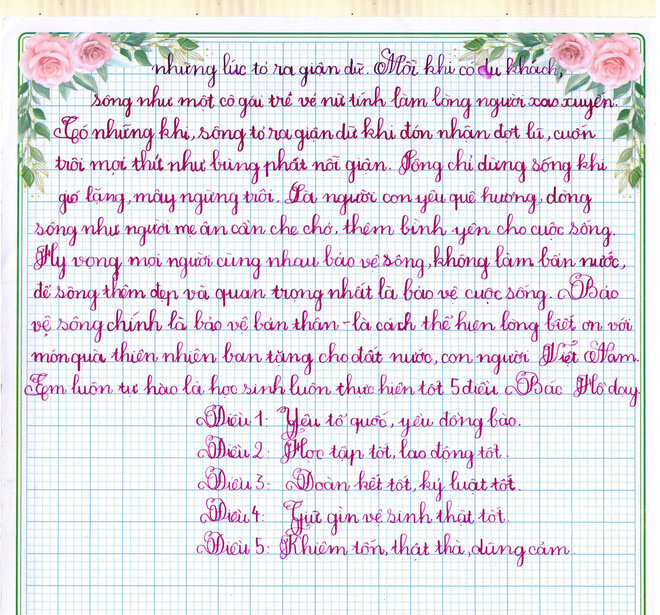 những lúc tỏ ra giận dữ. Mỗi khi có du khách,
sông như một cô gái trẻ vẻ nữ tính làm lòng người xao xuyến.
Có những khi, sông tỏ ra giận dữ khi đón nhận đợt lũ, cuốn
trôi mọi thứ như bùng phát nỗi giận. Sông chỉ dừng sóng khi
gió lặng, mây ngừng trôi. Là người con yêu quê hương, dòng
sông như người mẹ ân cần che chở, thêm bình yên cho cuộc sống.
Hy vọng mọi người cùng nhau bảo vệ sông, không làm bẩn nước,
để sông thêm đẹp và quan trọng nhất là bảo vệ cuộc sống. Bảo
vệ sông chính là bảo vệ bản thân - là cách thể hiện lòng biết ơn với
món quà thiên nhiên ban tặng cho đất nước, con người Việt Nam.
Em luôn tự hào là học sinh luôn thực hiện tốt 5 điều Bác Hồ dạy.
Điều 1: Yêu tổ quốc, yêu đồng bào.
Điều 2: Học tập tốt, lao động tốt.
Điều 3: Đoàn kết tốt, kỷ luật tốt.
Điều 4: Giữ gìn vệ sinh thật tốt.
Điều 5: Khiêm tốn, thật thà, dũng cảm.